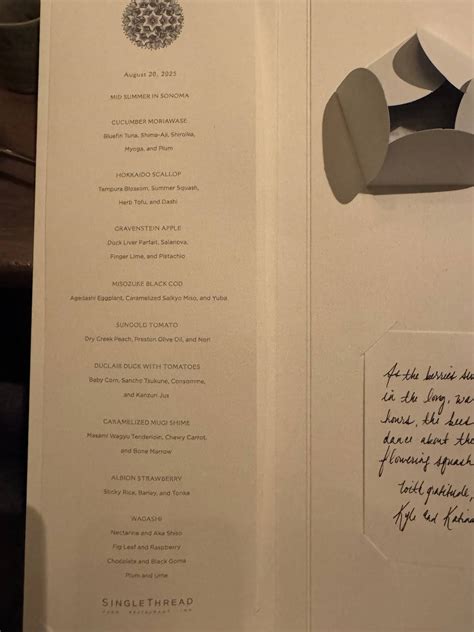 August 20, 2025
MID SUMMER IN SONOMA
CUCUMBER MORIAWASE
Bluefin Tuna, Shima-Aji, Shiroika,
Myoga, and Plum
HOKKAIDO SCALLOP
Tempura Blossom, Summer Squash,
Herb Tofu, and Dashi
GRAVENSTEIN APPLE
Duck Liver Parfait, Salanova,
Finger Lime, and Pistachio
MISOZUKE BLACK COD
Agedashi Eggplant, Caramelized Saikyo Miso, and Yuba
SUNGOLD TOMATO
Dry Creek Peach, Preston Olive Oil, and Nori
DUCLAIR DUCK WITH TOMATOES
Baby Corn, Sansho Tsukune, Consomme,
and Kanzuri Jus
CARAMELIZED MUGI SHIME
Masami Wagyu Tenderloin, Chewy Carrot,
and Bone Marrow
ALBION STRAWBERRY
Sticky Rice, Barley, and Tonka
WAGASHI
Nectarine and Aka Shiso
Fig Leaf and Raspberry
Chocolate and Black Goma
Plum and Ume
SINGLETHREAD
FARM RESTAURANT INN
As the berries sw
in the long, wa
hours, the bees
dance about the
flowering squash
With gratitude,
Kyle and Katina